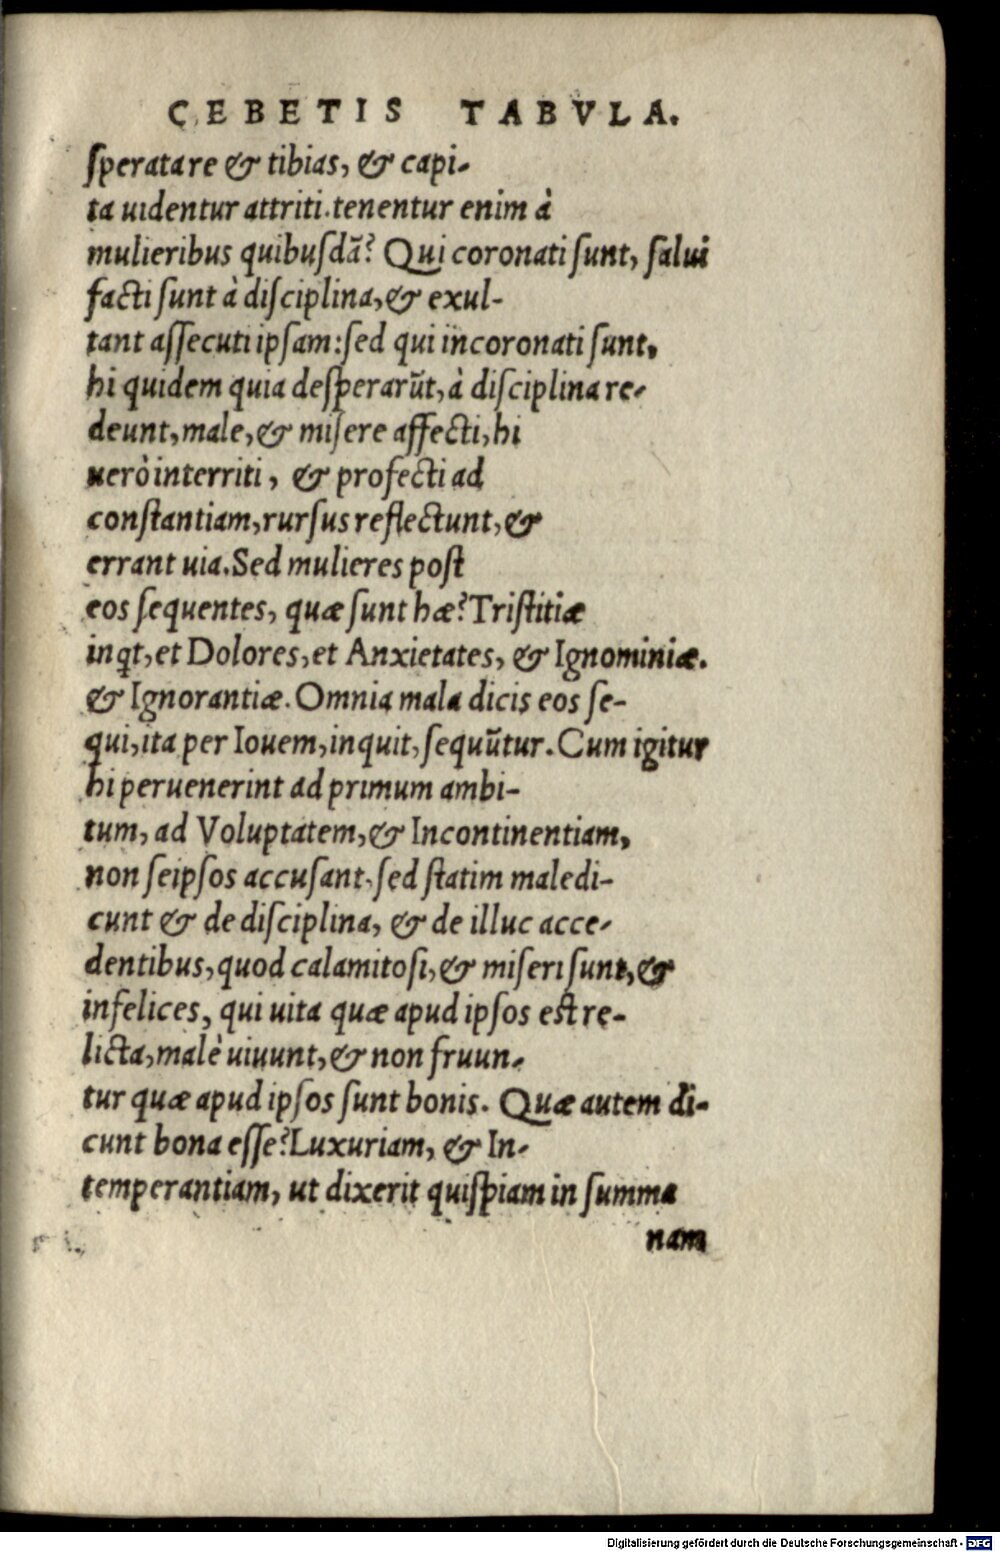 CEBETIS TABVLA.
ſperata re & tibias, & capi-
ta uidentur attriti. tenentur enim à
mulieribus quibuſdã? Qui coronati ſunt, ſalui
facti ſunt à diſciplina, & exul-
tant aſſecuti ipſam: ſed qui incoronati ſunt,
hi quidem quia deſperarũt, à diſciplina re-
deunt, male, & miſere affecti, hi
uerò interriti, & profecti ad
conſtantiam, rurſus reflectunt, &
errant uia. Sed mulieres poſt
eos ſequentes, quæ ſunt hæ? Triſtitiæ
inqt, et Dolores, et Anxietates, & Ignominiæ.
& Ignorantiæ. Omnia mala dicis eos ſe-
qui, ita per Iouem, inquit, ſequũtur. Cum igitur
hi peruenerint ad primum ambi-
tum, ad Voluptatem, & Incontinentiam,
non ſeipſos accuſant, ſed ſtatim maledi-
cunt & de diſciplina, & de illuc acce-
dentibus, quod calamitoſi, & miſeri ſunt, &
infelices, qui uita quæ apud ipſos eſt re-
licta, malè uiuunt, & non fruun-
tur quæ apud ipſos ſunt bonis. Quæ autem di-
cunt bona eſſe? Luxuriam, & In-
temperantiam, ut dixerit quiſpiam in ſumma
nam
Digitalisierung gefördert durch die Deutsche Forschungsgemeinschaft - DFG